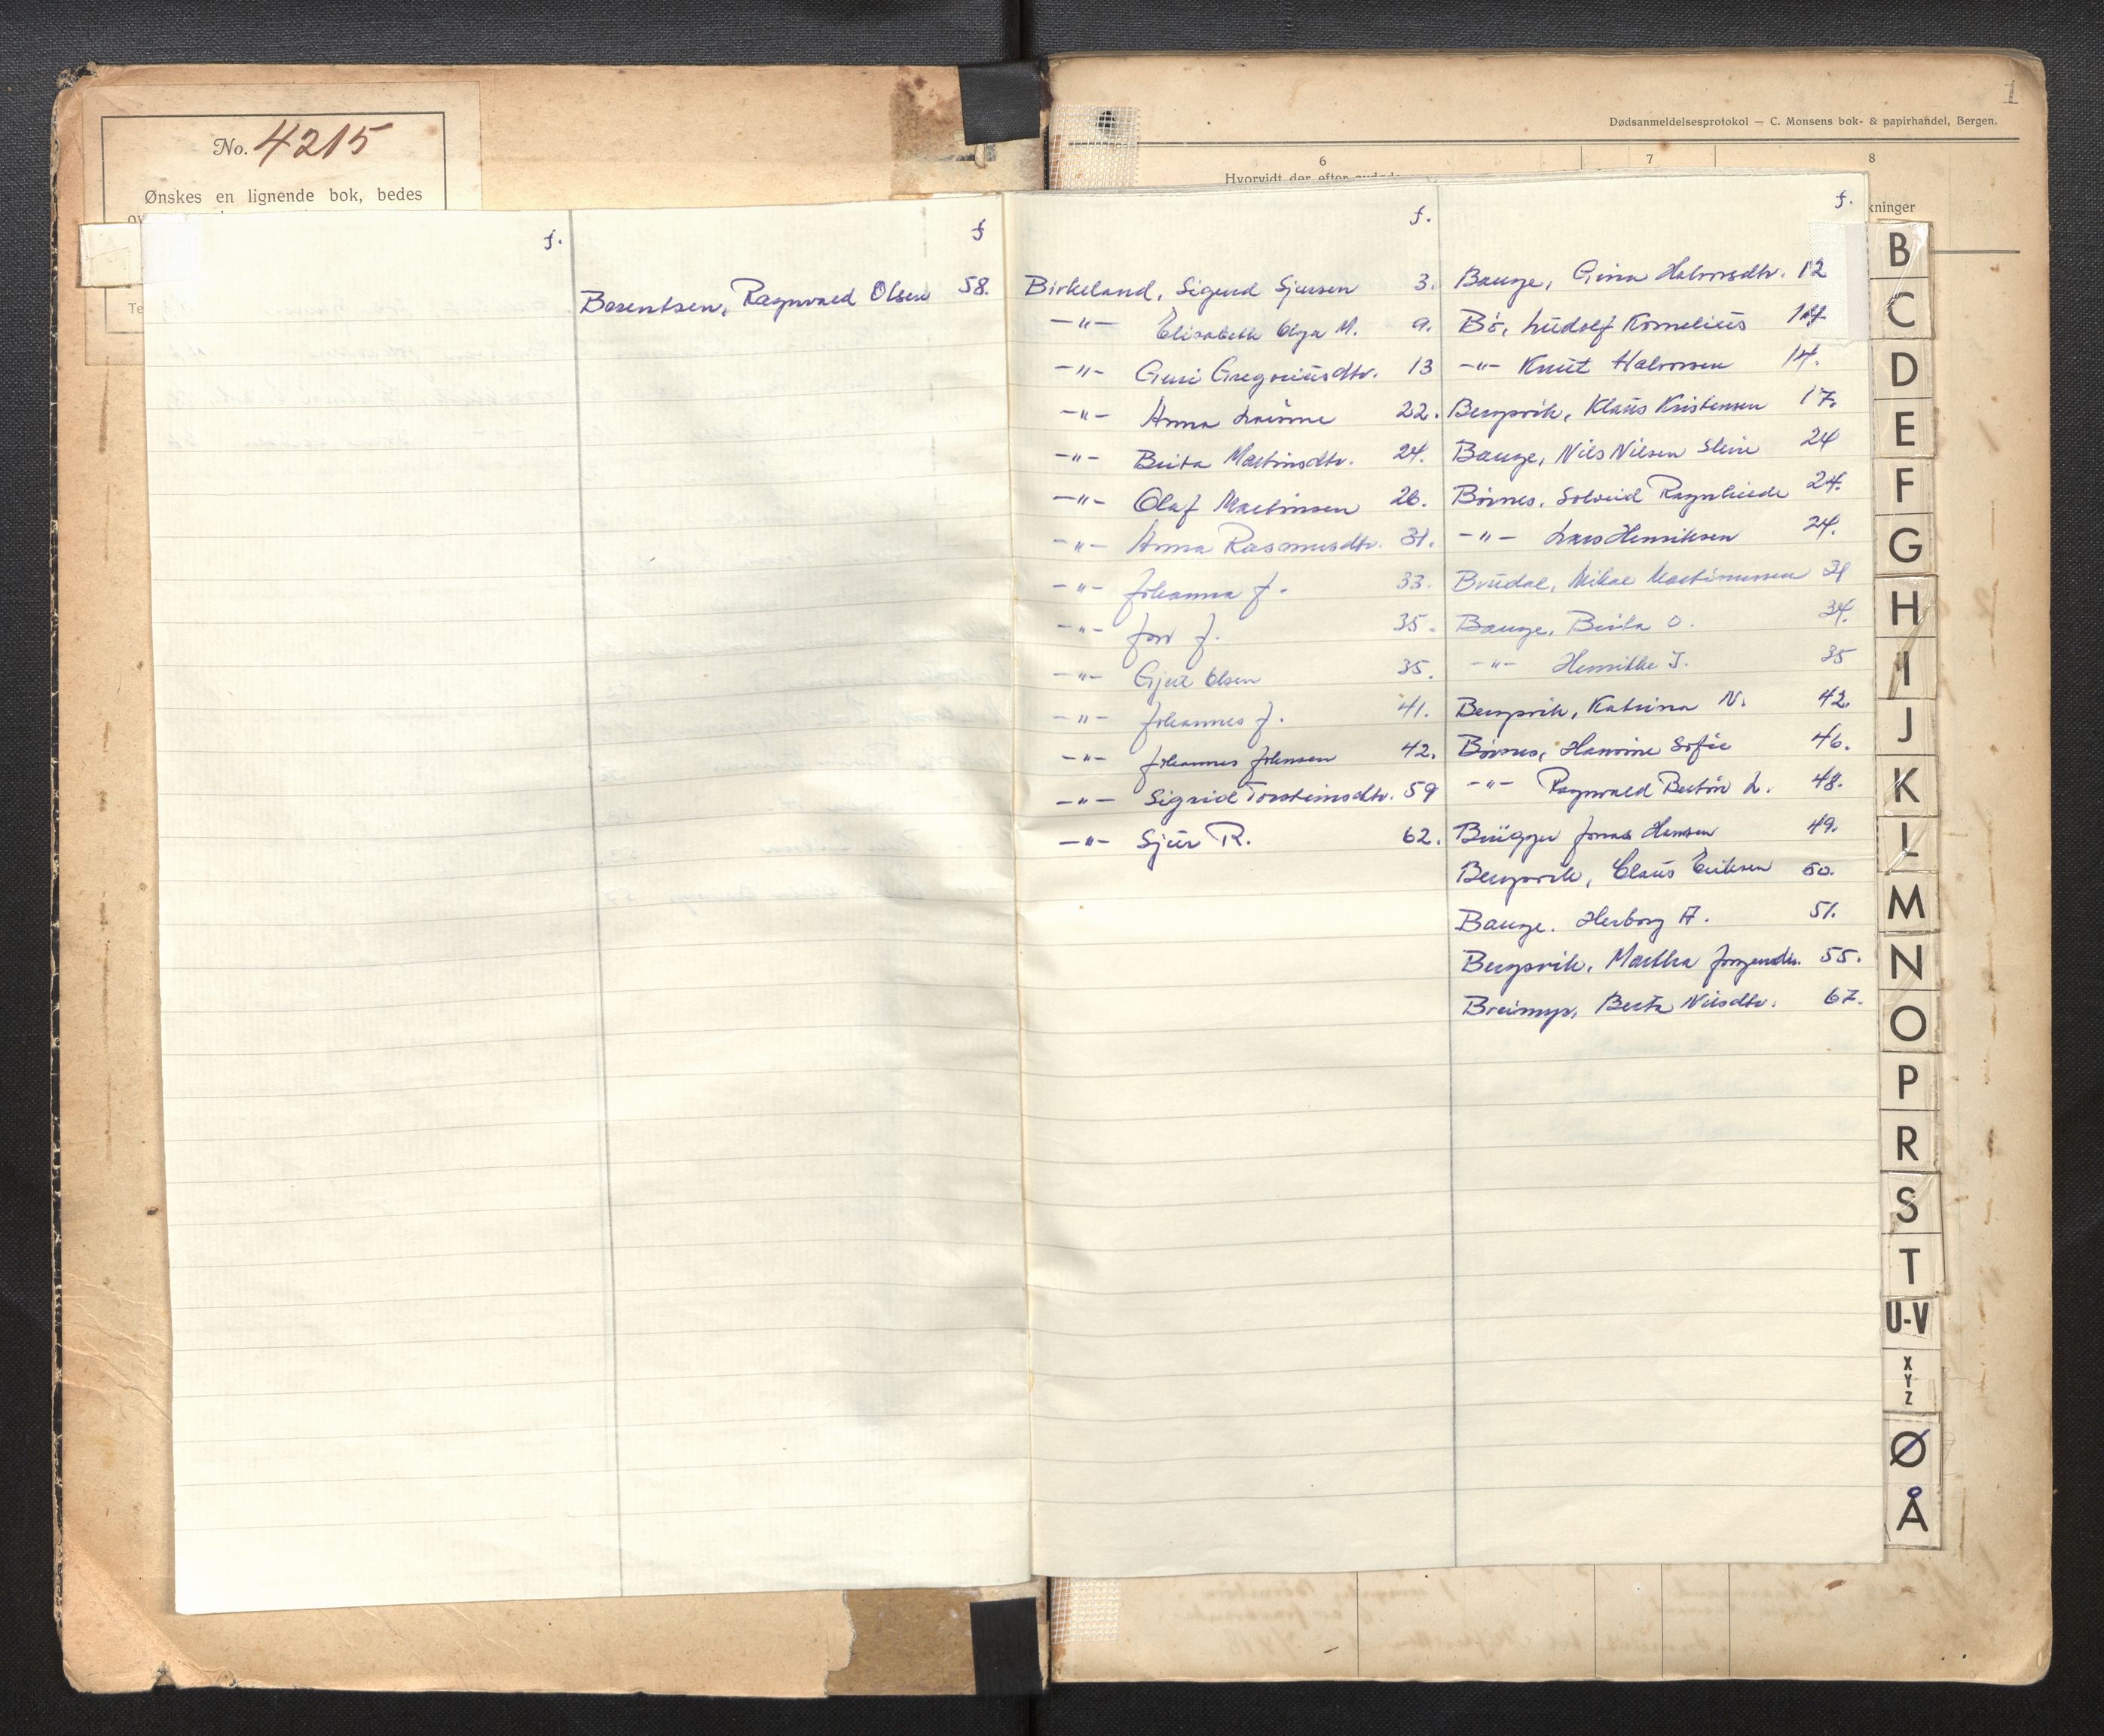 No. 4215
Ønskes en lignende bok, bedes
Te
f.
f
Berentsen, Ragnvald Olsen 58.
1
Dødsanmeldelsesprotokol — C. Monsens bok- & papirhandel, Bergen.
6 7 8
Hvorvidt der efter avdøde
kninger
f.
Birkeland, Sigurd Sjursen 3.
—"— Elisabeth Olga M. 9.
—"— Guri Gregoriusdtr. 13
—"— Anna Lavine 22.
—"— Brita Martinsdtr. 24.
—"— Olaf Martinsen 26.
—"— Anna Rasmusdtr. 31.
—"— Johanna J. 33.
—"— Jon J. 35.
—"— Gjert Olsen 35.
—"— Johannes J. 41.
—"— Johannes Johnsen 42.
—"— Sigrid Torsteinsdtr. 59
—"— Sjur R. 62.
f.
Bauge, Gina Halvorsdtr. 12
Bö, Ludolf Kornelius 14
—"— Knut Halvorsen 14.
Bergsvik, Klaus Kristensen 17.
Bauge, Nils Nilsen 24
Börnes, Solveid Ragnhilde 24.
—"— Lars Henriksen 24.
Brudal, Mikal Martinussen 31
Bauge, Brita O. 34.
—"— Henrikke J. 35
Bergsvik, Katrina N. 42.
Börnes, Hansine Sofie 46.
—"— Ragnvald Bertin L. 48.
Brügger Jonas Hansen 49.
Bergsvik, Claus Eriksen 50.
Bauge. Herborg A. 51.
Bergsvik, Martha 55.
Breimyr, Berta Nilsdtr. 67.
B
C
D
E
F
G
H
I
J
K
L
M
N
O
P
R
S
T
U-V
X
Y
Z
Ø
Å